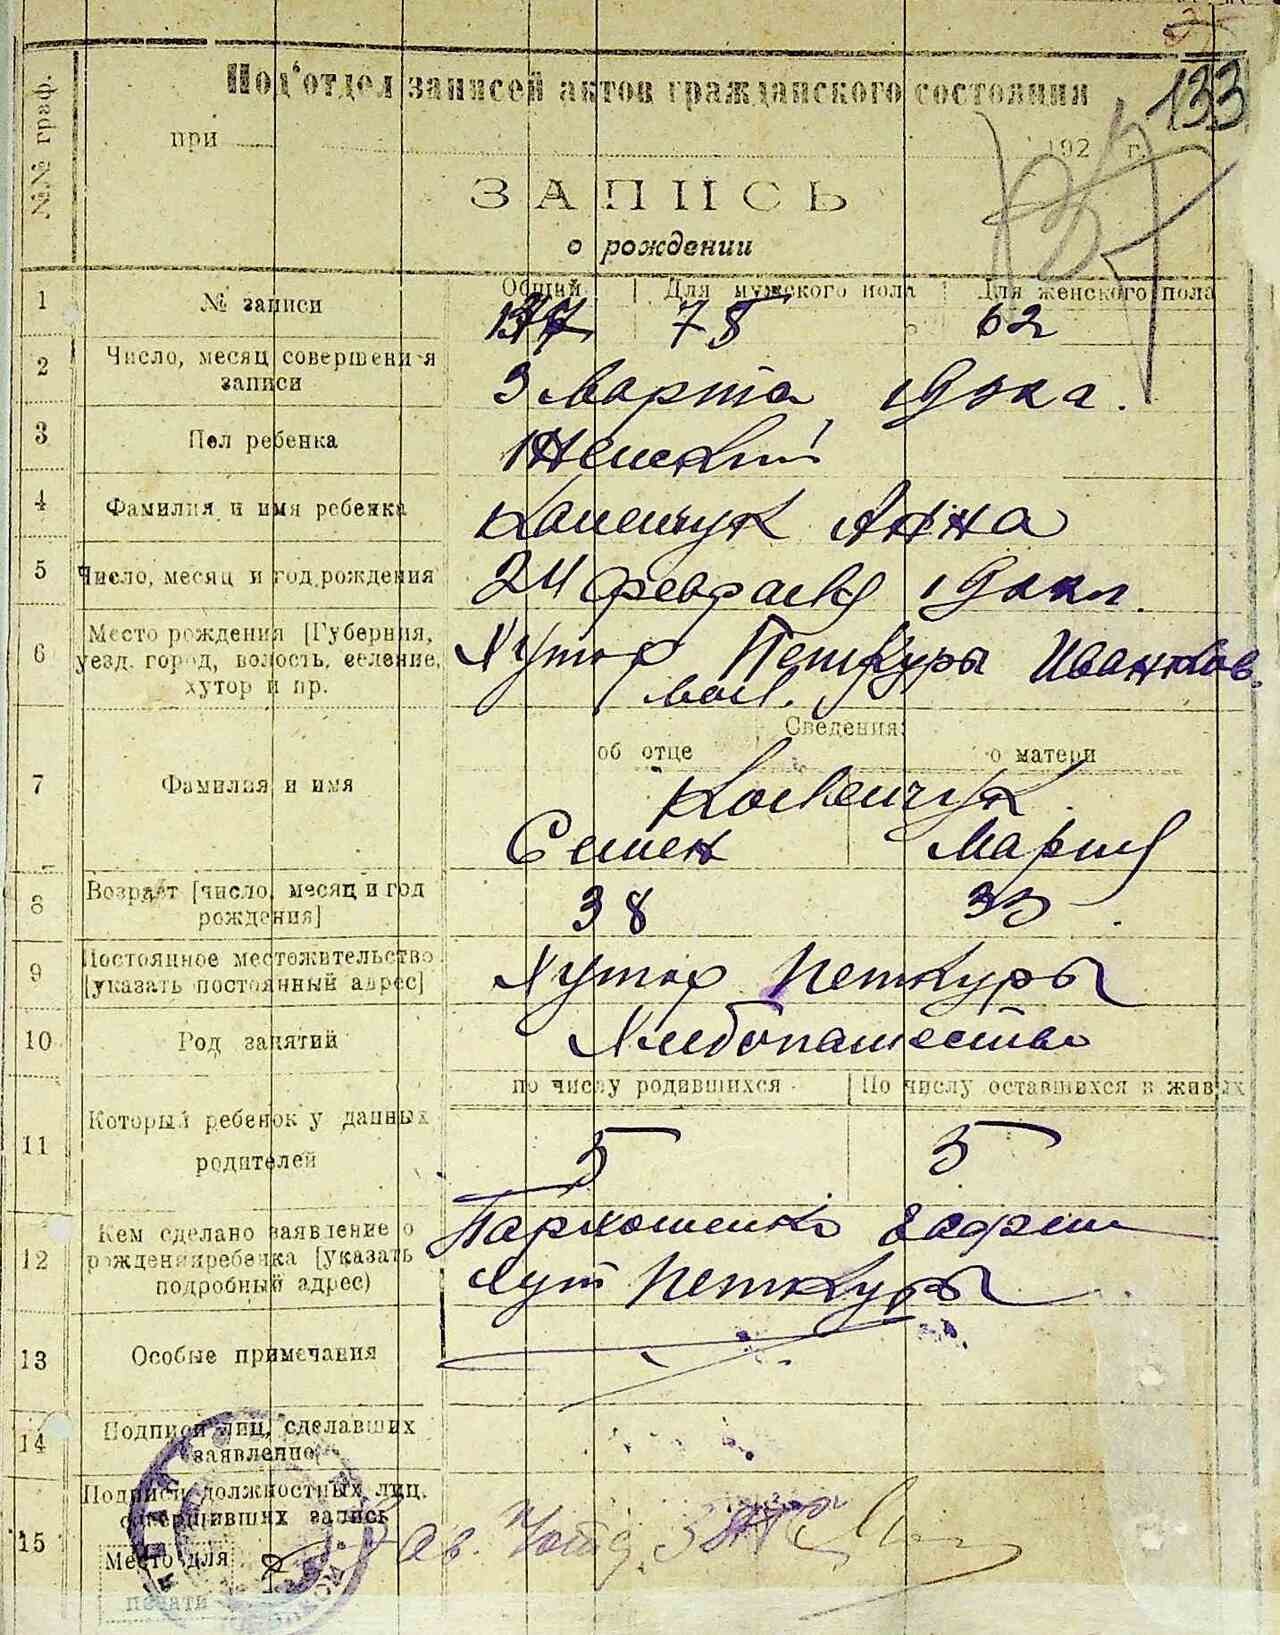 133
№№ граф.
Под'отдел записей актов гражданского состояния
при 192 г.
ЗАПИСЬ
о рождении
1 № записи
Общий Для мужского пола Для женского пола
137 75 62
2 Число, месяц совершения записи
3 Марта
3 Пол ребенка
Женский
4 Фамилия и имя ребенка
Анна
5 Число, месяц и год рождения
24 февраля
6 Место рождения [Губерния,
уезд. город, волость, селение,
хутор и пр.
Хутор Петкуры Иванков.
вол.
Сведения:
об отце о матери
7 Фамилия и имя
Коленчук
Семен Мария
8 Возраст [число, месяц и год
рождения]
38 33
9 Постоянное местожительство
[указать постоянный адрес]
Хутор Петкуры
10 Род занятий
Хлебопашество
по числу родившихся По числу оставшихся в живых
11 Который ребенок у данных
родителей
5 5
12 Кем сделано заявление о
рождении ребенка [указать
подробный адрес)
Пархоменко
Хут Петкуры
13 Особые примечания
14 Подписи лиц, сделавших
заявление
15 Подписи должностных лиц,
совершивших запись
Место для
печати
Зав.